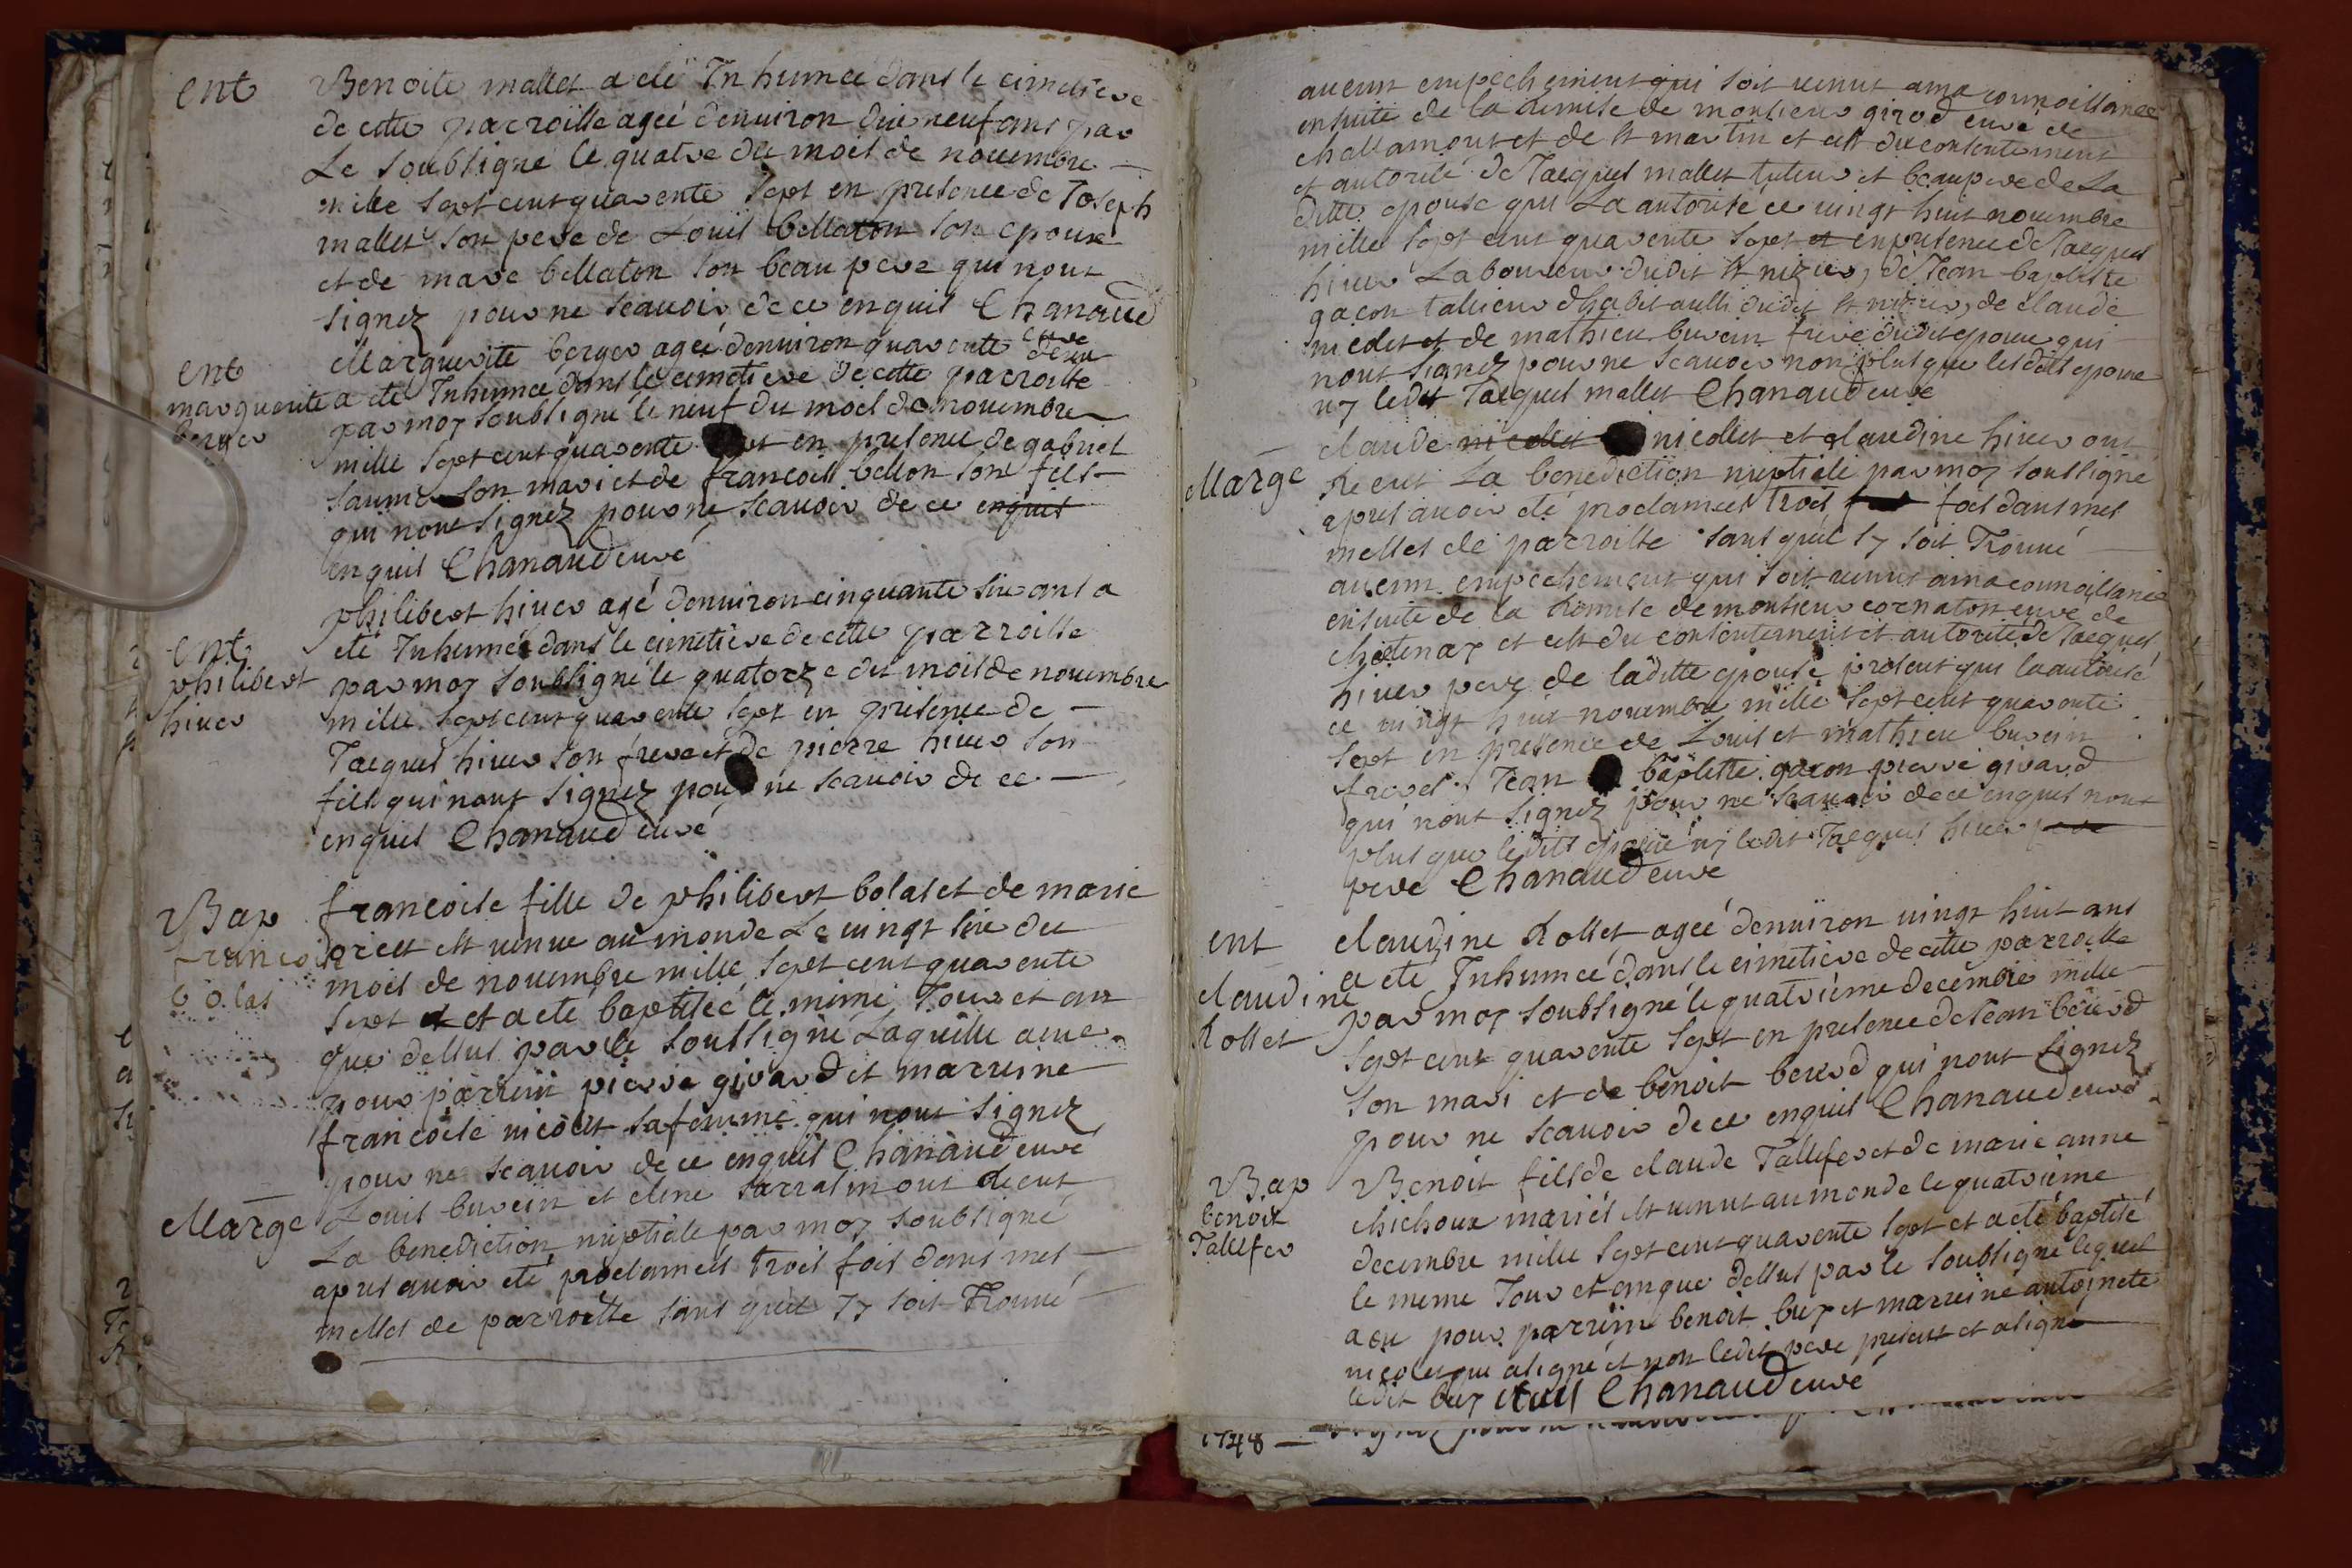 ent
Benoite mallet a eté Inhumeé dans le cimetiere
de cette parroisse ageé denuiron dixneuf ans par
Le soubsigné le quatre du mois de nouembre —
mille sept cent quarente sept en presence de Joseph
mallet son pere de Louis bellaton son epoux
et de marc bellaton son beau pere qui nont
signez pour ne scauoir de ce enquis Chanaud
curé
ent
marguerite
berger
Marguerite berger ageé denuiron quarente deux
a eté Inhumeé dans le cimetiere de cette parroisse
par moy soubsigné le neuf du mois de nouembre
mille sept cent quarente en presence de gabriel
saunier son mari et de francois bellon son fils
qui nont signez pour ne scauoir de ce enquis
enquis Chanaud curé
ent
philibert
hiuer
philibert hiuer agé denuiron cinquante six ans a
eté Inhumé dans le cimetiere de cette parroisse
par moy soubsigné le quatorze du mois de nouembre
mille sept cent quarente sept en presence de —
Jacques hiuer son frere et de pierre hiuer son
fils qui nont signez pour ne scauoir de ce —
enquis Chanaud curé
Bap
francoise
bolas
francoise fille de philibert bolas et de marie
est venue au monde Le vingt six du
mois de nouembre mille sept cent quarente
sept et et a eté baptiseé le meme Jour et an
que dessus par le soussigné Laquelle a eue
pour parrein pierre girard et marreine
francoise nicolet sa femme qui nont signez
pour ne scauoir de ce enquis Chanaud curé
Marge
Louis burein et sarrasin ont receus
La benediction nuptiale par moy soubsigné
apres auoir eté proclameés trois fois dans mes —
messes de parroisse sans quil sy soit Trouué —
aucun empechement qui soit venus a ma connoissance
ensuite de la Remise de monsieur girod curé de
chattamont et de st martin et cest du consentement
et autorité de Jacques mallet tuteur et beaupere de La
ditte epouse qui La autorisé ce vingt huit nouembre
mille sept cent quarente sept et en presence de Jacques
hiuer Laboureur dudit st nizier, de Jean baptiste
gacon tallieur dhabit aussi dudit st nizier, de claude
nicolet et de mathieu burein frere dudit epoux qui
nont signez pour ne scauoir non plus que lesdits epoux
ny ledit Jacques mallet Chanaud curé
Marge
claude nicollet nicollet et claudine hiuer ont
Receus La benediction nuptiale par moy soussigné
apres auoir eté proclameés trois fois fois dans mes
messes de parroisse sans quil sy soit Trouué —
aucun empechement qui soit venus a ma connoissance
ensuite de la Remise de monsieur cornaton curé de
chatenay et cest du consentement et autorité de Jacques
hiuer pere de laditte epouse present qui la autorisé
ce vingt huit nouembre mille sept cent quarente
sept en presence de Louis et mathieu burein
freres Jean baptiste gacon pierre girard
qui nont signez pour ne scauoir de ce enquis nont
plus que lesdits epoux ny ledit Jacques hiuer pere
pere Chanaud curé
ent
claudine
Rollet
claudine Rollet ageé denuiron vingt huit ans
a eté Inhumeé dans le cimetiere de cette parroisse
par moy soubsigné le quatrieme decembre mille
sept cent quarente sept en presence de Jean berod
son mari et de benoit berod qui nont signez
pour ne scauoir de ce enquis Chanaud curé
Bap
benoit
Tallifer
Benoit fils de claude Tallifer et de marie anne
chichoux mariés est venus au monde le quatrieme
decembre mille sept cent quarente sept et a eté baptisé
le meme Jour et an que dessus par le soubsigné lequel
a eu pour parrein benoit buy et marreine antoinete
nicolet qui a signé et non ledit pere present et a signé
ledit buy Chanaud curé
1748 —